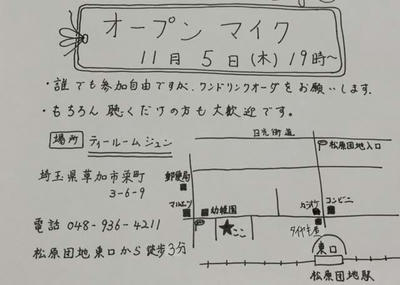 オープン マイク
11月 5日(木) 19時〜
・誰でも参加自由ですが、ワンドリンクオーダをお願いします。
・もちろん 聴くだけの方も大歓迎です。
場所 ティールーム ジュン
埼玉県草加市栄町
3-6-9
電話 048-936-4211
松原団地東口から徒歩3分
日光街道
松原団地入口
郵便局
マルエツ
幼稚園
カラオケ
コンビニ
ここ
ダイヤモ屋
東口
松原団地駅